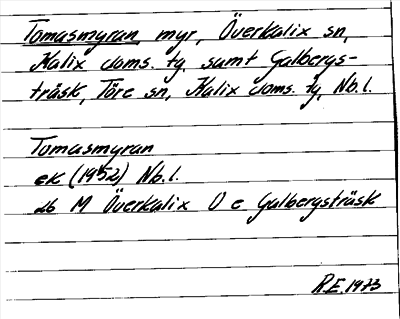 Tomasmyran, myr, Överkalix sn,
Kalix doms. tg. samt Galbergs-
träsk, Töre sn, Kalix doms. tg, Nb. l.
Tomasmyran
ek (1952) Nb. l.
db M Överkalix O e Galbergsträsk
R.E. 1973